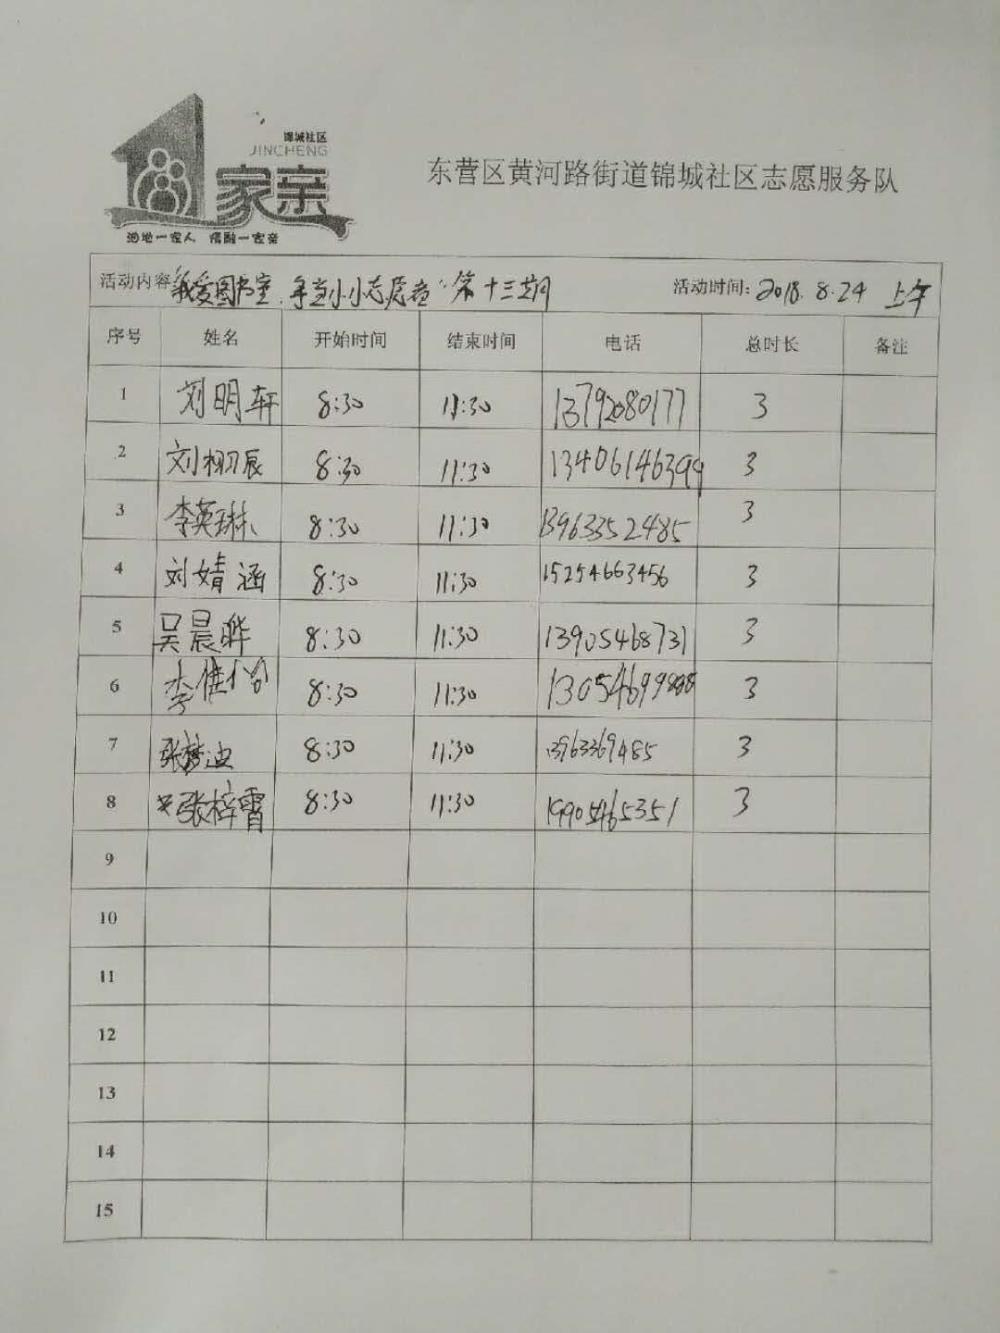 锦城社区
JINCHENG
家亲
油地一家人 情融一家亲
东营区黄河路街道锦城社区志愿服务队
活动内容 "我爱图书室,争当小小志愿者"第十三期 活动时间: 2018.8.24 上午
序号 姓名 开始时间 结束时间 电话 总时长 备注
1 刘明轩 8:30 11:30 13792080177 3
2 刘栩辰 8:30 11:30 13406146399 3
3 李英琳 8:30 11:30 13963352485 3
4 刘婧涵 8:30 11:30 15254663456 3
5 吴晨晔 8:30 11:30 13905468731 3
6 李佳 8:30 11:30 3
7 张梦迪 8:30 11:30 13963369485 3
8 张梓霄 8:30 11:30 19905465351 3
9
10
11
12
13
14
15